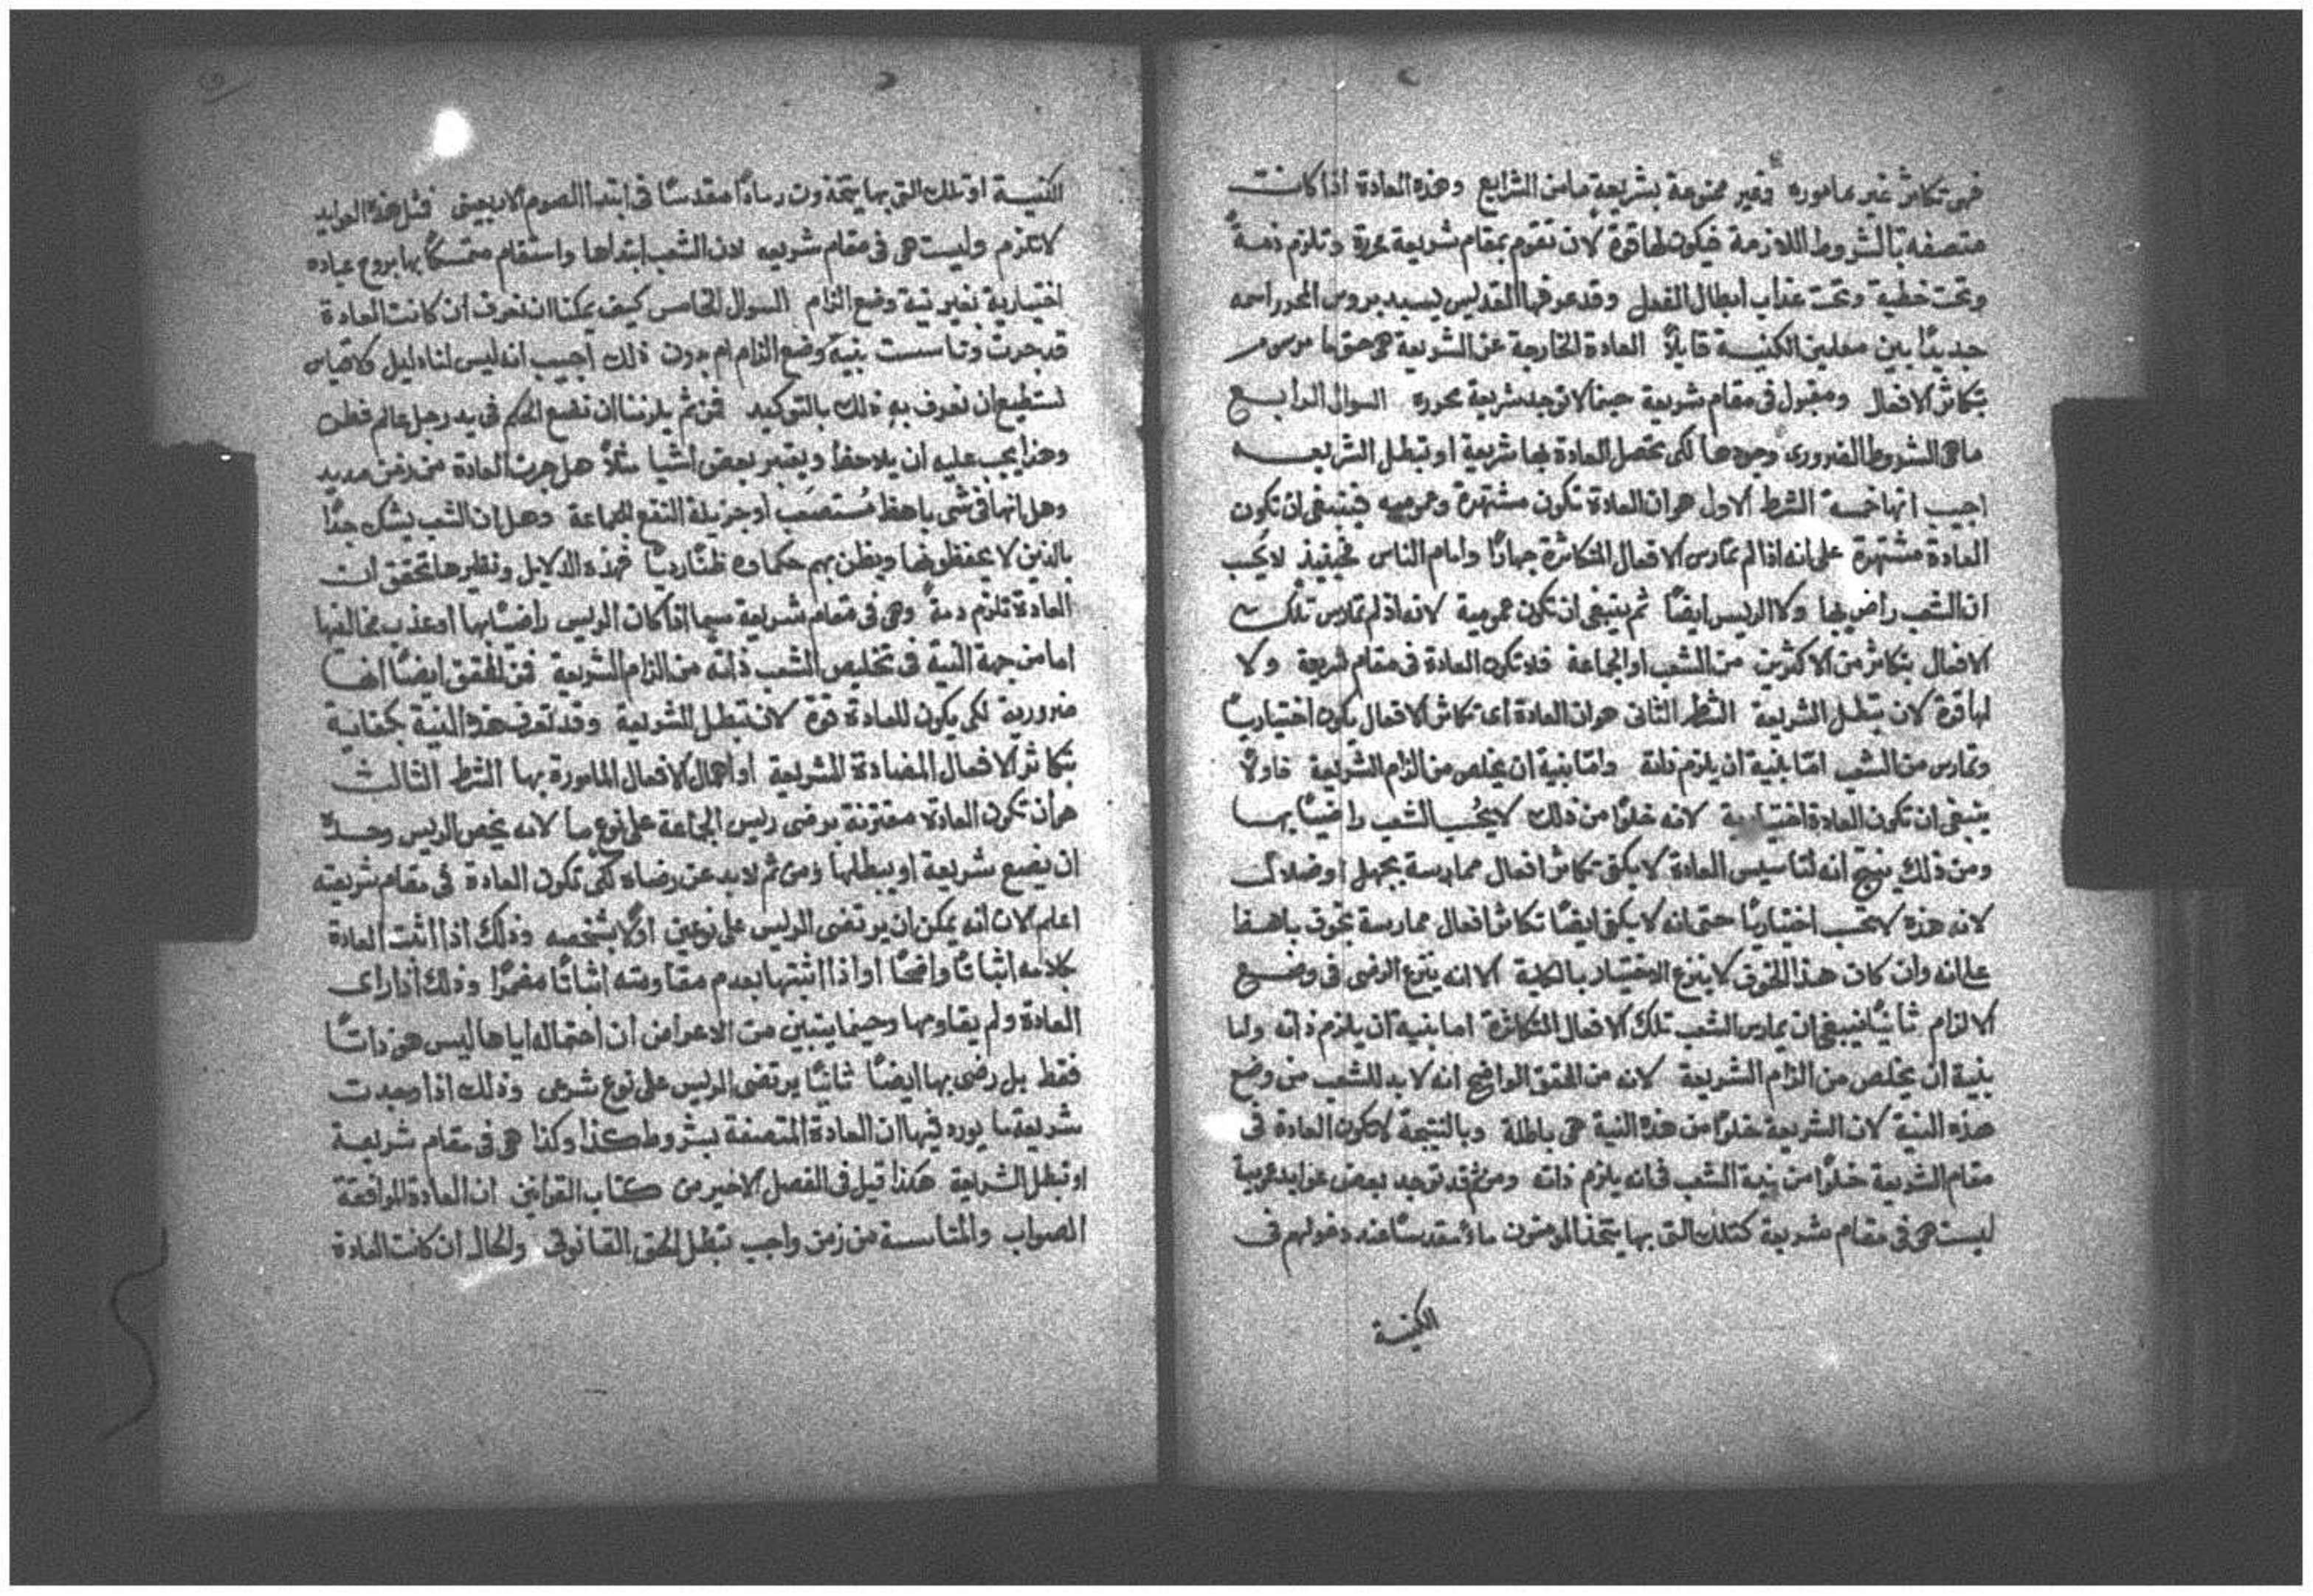 فهى تكاثر غير ماموره وغير ممنوعة بشريعة ما من الشرايع وهذه العادة اذا كانت
متصفه بالشروط اللازمة فيكون لها قوة لان تقوم بمقام شريعة محررة وتلزم ذمةً
وتحت خطية وتحت عذاب ابطال الفعل وقد عرفها القديس يسيدبروس المحرر اسمه
جديدًا بين معلمين الكنيسة قايلاً العادة الخارجة عن الشريعة هى حق ما مرسوم
بتكاثر الافعال ومقبول فى مقام شريعة حينما لا توجد شريعة محرره السوال الرابع
ما هى الشروط الضرورى وجودها لكى تحصل العادة بها شريعة او تبطل الشريعه
اجيب انها خمسة الشرط الاول هو ان العادة تكون مشتهرة وعموميه فينبغى ان تكون
العادة مشتهرة على انه اذا لم تمارس الافعال المتكاثرة جهارًا وامام الناس فحينيذ لا يُحسب
ان الشعب راضٍ بها ولا الريس ايضًا ثم ينبغى ان تكون عمومية لانه اذ لم تمارس تلك
الافعال بتكاثر من الاكثرين من الشعب او الجماعة فلا تكون العادة فى مقام شريعة ولا
لها قوة لان تبطل الشريعة الشرط الثانى هو ان العادة اى تكاثر الافعال يكون اختياريًا
وتمارس من الشعب امّا بنية ان يلزم ذاته وامّا بنية ان يخلص من الزام الشريعة فاولاً
ينبغى ان تكون العادة اختيارية لانه خلوًا من ذلك لا يُحسب الشعب راضيًا بها
ومن ذلك ينتج انه لتاسيس العادة لا يكفى تكاثر افعال ممارسة بجهل او ضلال
لانه هذه لا تحسب اختياريًا حتى انه لا يكفى ايضًا تكاثر افعال ممارسة بخوف باهظ
على انه وان كان هذا الخوف لا ينزع الاختيار بالكلية الا انه ينزع الرضى فى وضع
الالزام ثانيًا فينبغى ان يمارس الشعب تلك الافعال المتكاثرة اما بنية ان يلزم ذاته واما
بنية ان يخلص من الزام الشريعة لانه من المحقق الواضح انه لا بد للشعب من وضع
هذه النية لان الشريعة خلوًا من هذه النية هى باطلة وبالنتيجة لا تكون العادة فى
مقام الشريعة خلوًا من نية الشعب فى انه يلزم ذاته ومن ثم قد توجد بعض عوايد عربية
ليست هى فى مقام شريعة كتلك التى بها يتخذ المومنون ماءً مقدسًا عند دخولهم فى
الكنيسة
الكنيسة او تلك التى بها يتخذون رمادًا مقدسًا فى ابتدا الصوم الاربعينى فمثل هذه العوايد
لا تلزم وليست هى فى مقام شريعه لان الشعب ابتداها واستقام متمسكًا بها بروح عباده
اختيارية بغير نية وضع الزام السوال الخامس كيف يمكنا ان نعرف ان كانت العادة
قد جرت وتاسست بنية وضع الزام ام بدون ذلك اجيب انه ليس لنا دليل ولا قياس
نستطيع ان نعرف به ذلك بالتوكيد فمن ثم يلزمنا ان نضع الحكم فى يد رجل عالم فطن
وهذا يجب عليه ان يلاحظ ويعتبر بعض اشيا مثلاً هل جرت العادة من زمن مديد
وهل انها فى شى باهظ مُستصعَب او جزيلة النفع للجماعة وهل ان الشعب يشك جدًا
بالذين لا يحفظونها ويظن بهم حكماوه ظنًا رديًا فهذه الدلايل ونظيرها تحقق ان
العادة تلزم ذمةً وهى فى مقام شريعة سيما اذا كان الريس راضيًا بها او عذب مخالفيها
اما من جهة النية فى تخليص الشعب ذاته من الزام الشريعة فمن المحقق ايضًا انها
ضرورية لكى يكون للعادة قوة لان تبطل الشريعة وقد تعرف هذه النية بكفاية
بتكاثر الافعال المضادة للشريعة او اهمال الافعال المامورة بها الشرط الثالث
هو ان تكون العادة مقترنة برضى ريس الجماعة على نوع ما لانه يخص الريس وحدهُ
ان يضع شريعة او يبطلها ومن ثم لا بد عن رضاه لكى تكون العادة فى مقام شريعته
اعلم الان انه يمكن ان يرتضى الريس على نوعين اولاً بشخصه وذلك اذا اثبت العادة
بكلامه اثباتًا واضحًا او اذا اثبتها بعدم مقاومته اثباتًا مضمرًا وذلك اذا راى
العادة ولم يقاومها وحينما يتبين من الاعراض ان احتماله اياها ليس هو ذاتًا
فقط بل رضى بها ايضًا ثانيًا يرتضى الريس على نوع شرعى وذلك اذا وجدت
شريعة ما يورد فيها ان العادة المتصفة بشروط كذا وكذا هى فى مقام شريعة
او تبطل الشريعة هكذا قيل فى الفصل الاخير من كتاب القوانين ان العادة الموافقة
الصواب والمتاسسة من زمن واجب تبطل الحق القانونى والحال ان كانت العادة